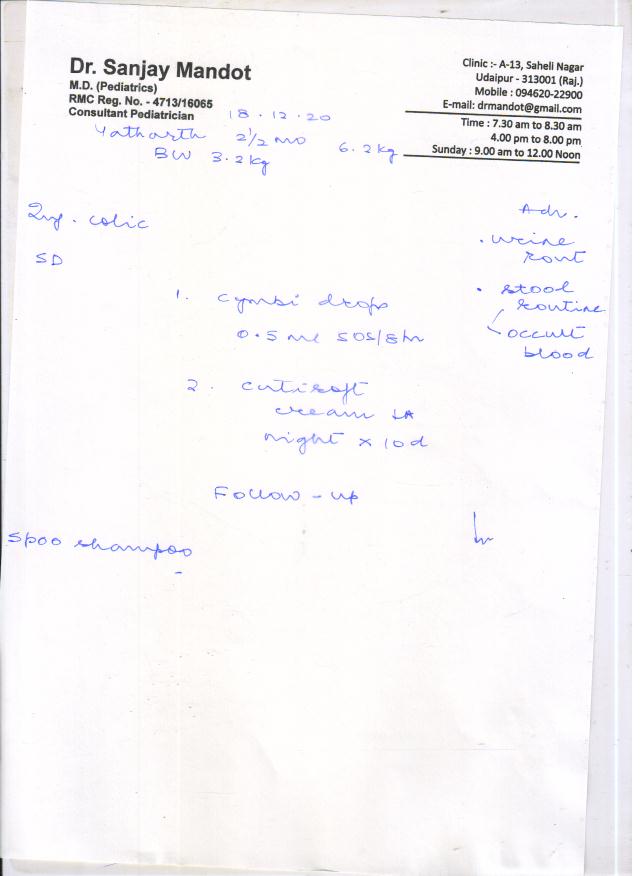 Dr. Sanjay Mandot
M.D. (Pediatrics)
RMC Reg. No. - 4713/16065
Consultant Pediatrician
Clinic :- A-13, Saheli Nagar
Udaipur - 313001 (Raj.)
Mobile : 094620-22900
E-mail: drmandot@gmail.com
Time : 7.30 am to 8.30 am
4.00 pm to 8.00 pm
Sunday : 9.00 am to 12.00 Noon
18.12.20
Yatharth 2 1/2 mo 6.2kg
BW 3.2kg
colic
SD
Adv.
. urine
rout
. stool
routine
occult
blood
1. cymbi drops
0.5 ml SOS/8hr
2. cutisoft
cream LA
night x 10d
Follow-up
Spoo shampoo